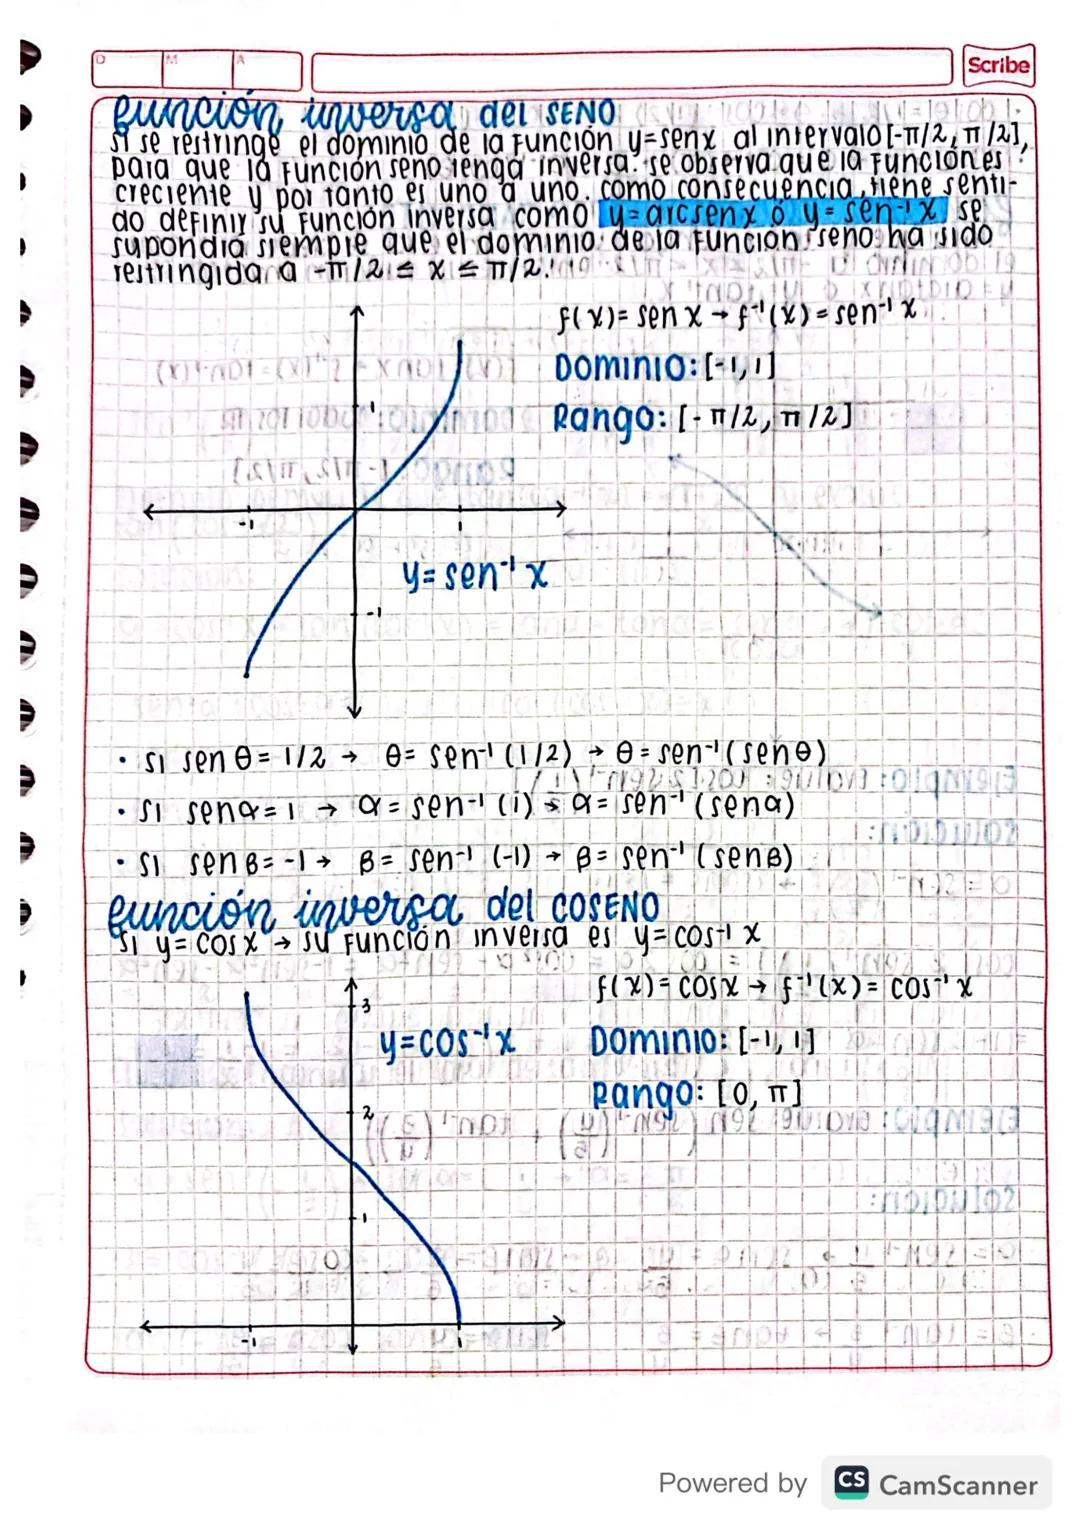 D M A
Scribe
Función inversa del SENO
si se restringe el dominio de la función y=senx al intervalo [-π/2, π/2],
para que la función seno tenga inversa. se observa que la función es
creciente y por tanto es uno a uno. como consecuencia, tiene senti-
do definir su función inversa como y=arcsen x ó y=sen⁻¹x se
supondrá siempre que el dominio de la función seno ha sido
restringida a -π/2 ≤ x ≤ π/2.
f(x)= sen x → f⁻¹(x)=sen⁻¹ x
Dominio: [-1,1]
Rango: [-π/2, π/2]
1
-1
1
y=sen⁻¹ x
-1
• si sen θ= 1/2 → θ= sen⁻¹ (1/2) → θ=sen⁻¹(senθ)
• si senα=1 → α=sen⁻¹ (1) → α= sen⁻¹ (senα)
• si sen β=-1 → β= sen⁻¹ (-1) → β= sen⁻¹ (senβ)
Función inversa del COSENO
si y=cosx → su función inversa es y=cos⁻¹ x
f(x)=cosx → f⁻¹(x)= cos⁻¹x
3
y=cos⁻¹x
Dominio: [-1,1]
Rango: [0, π]
2
1
-1
1
Powered by CS CamScanner